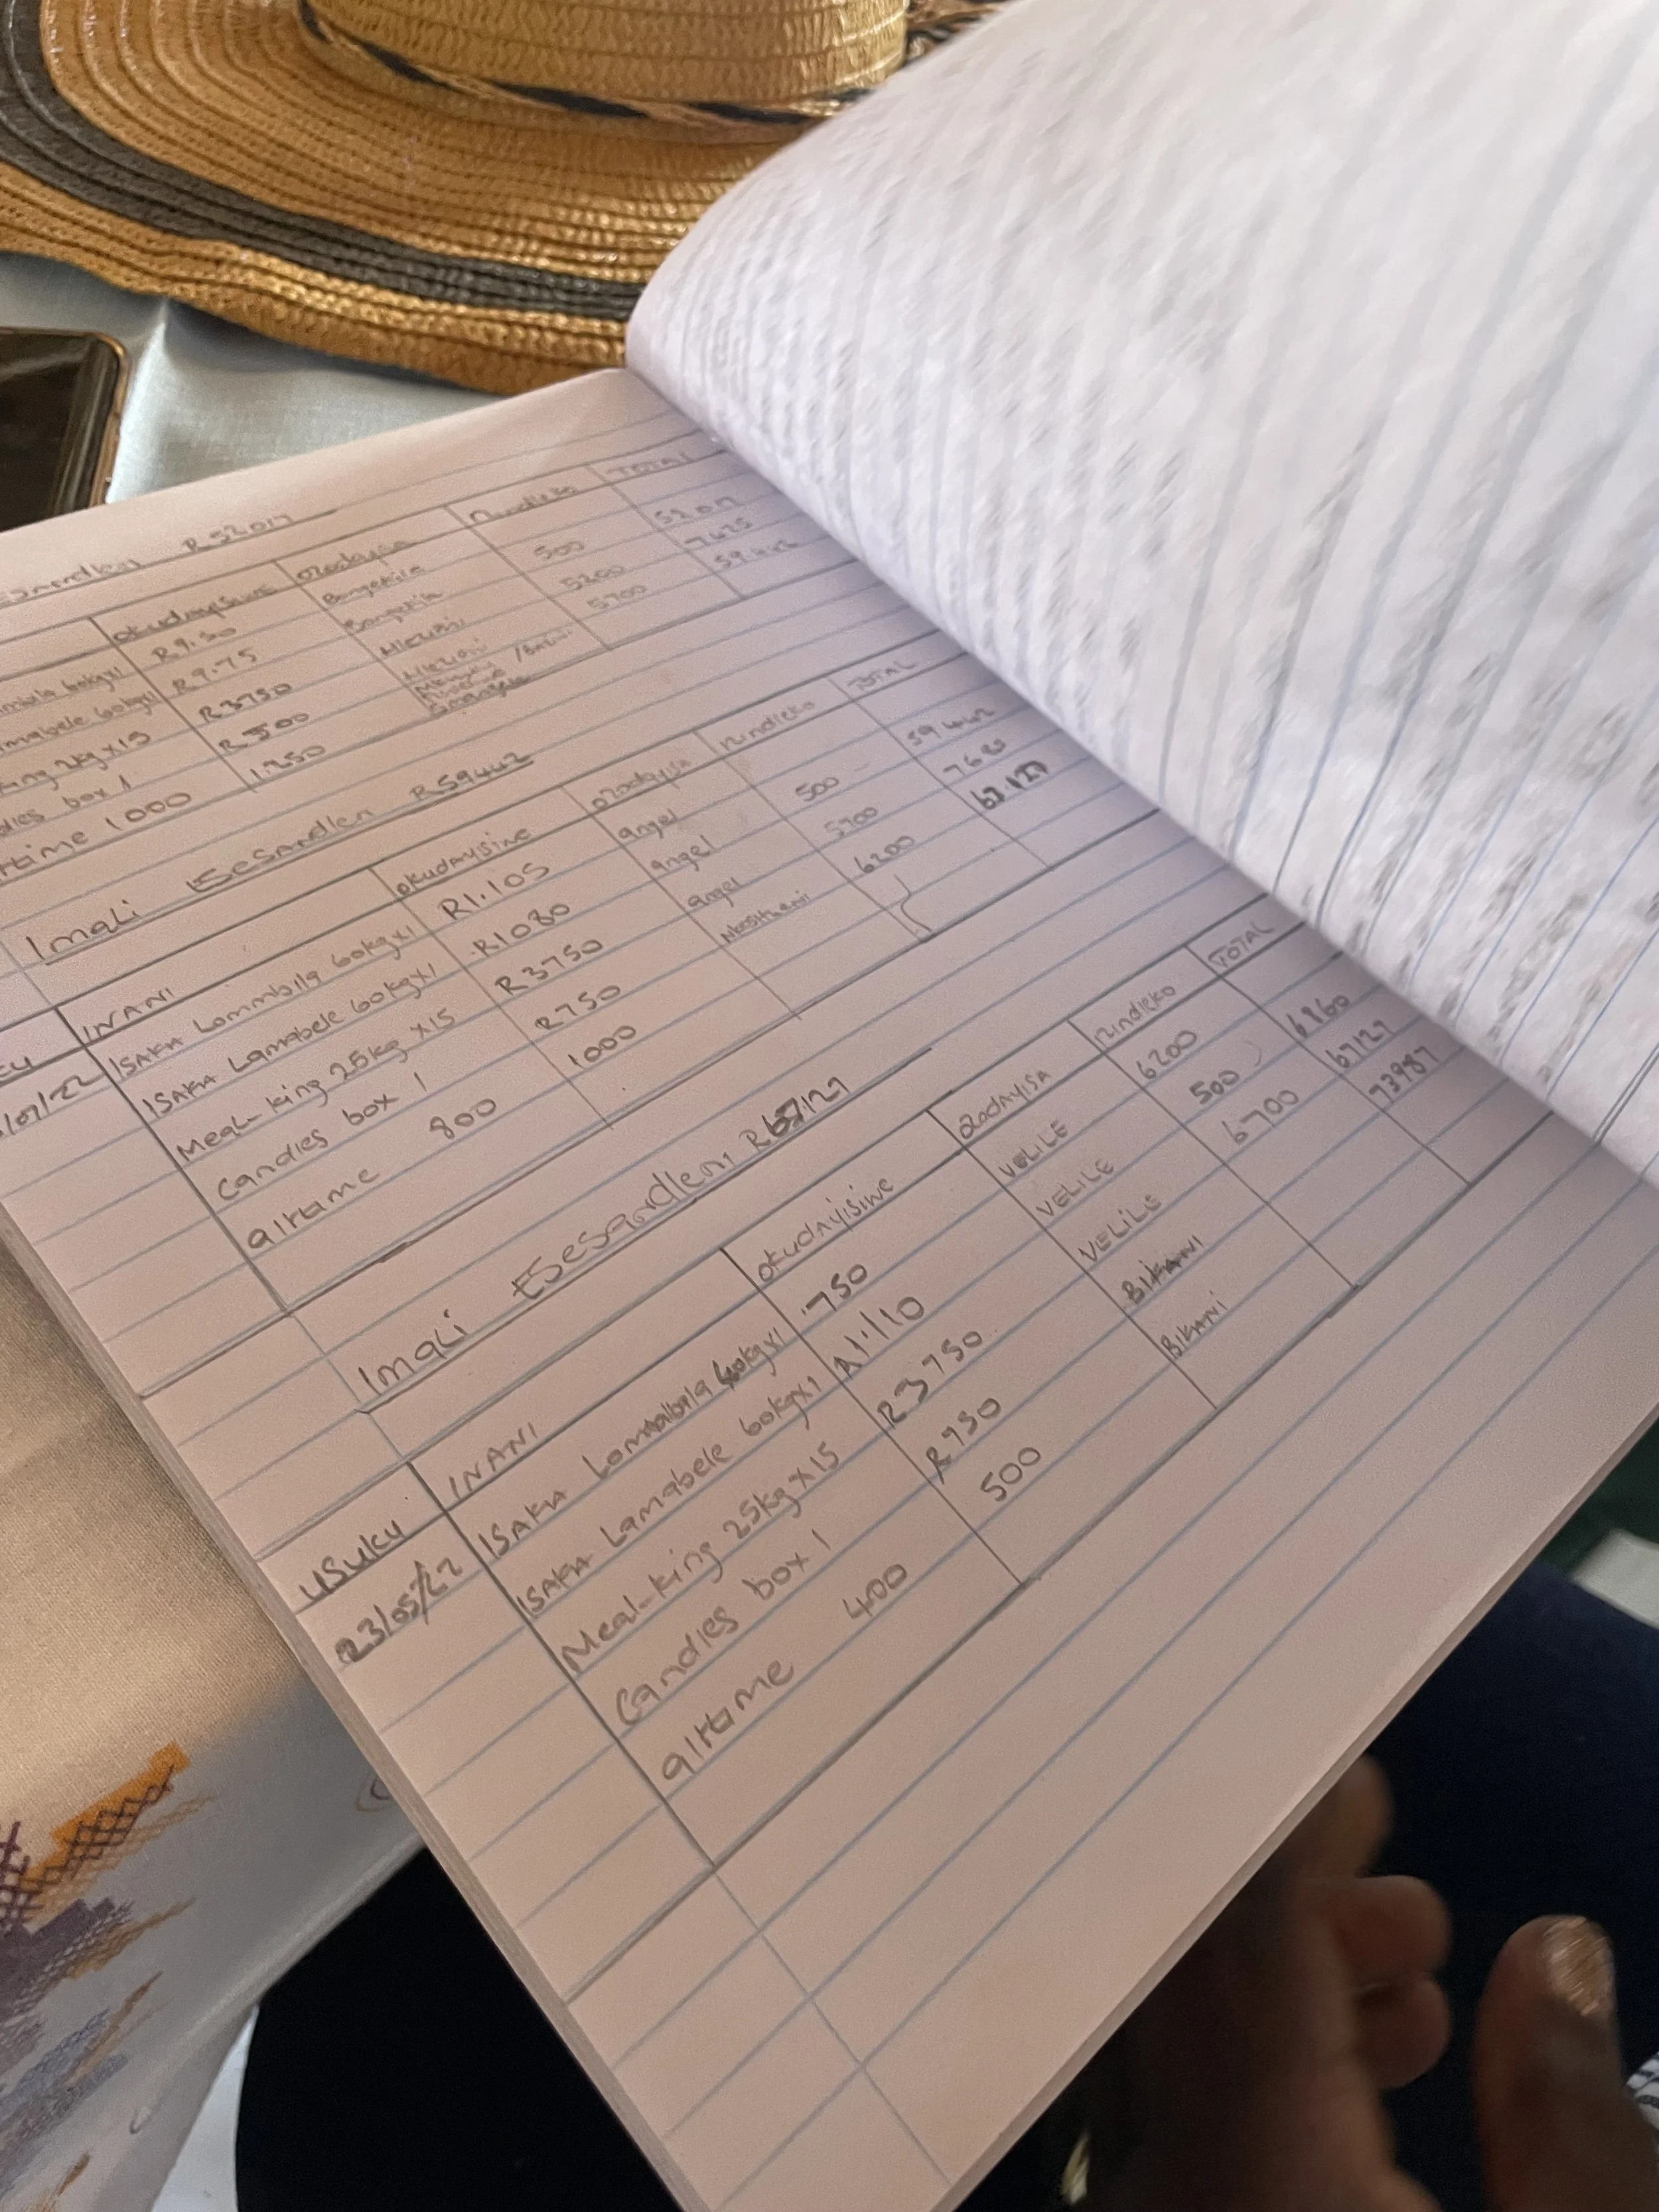 R52017
okudayisiwe ozodayisa nzindleko TOTAL
60kgx1 R9.50 Bongekile 500 52017
60kgx1 R9.75 Bongekile 5200 7425
2kg x15 R3750 Hlezini 5700 59442
box 1 R500 Hlezini
1000 1250
Imali Esesandleni R59442
INANI okudayisiwe ozodayisa nzindleko TOTAL
/07/22 ISAKA Lommbila 60kgx1 R1.105 angel 500 59442
ISAKA Lamabele 60kgx1 R1080 angel 5700 7685
Meal-king 25kg x15 R3750 angel 6200 67.127
Candles box 1 R750 Nkosithani
airtime 800 1000
Imali Esesandleni R67.127
USUKU INANI okudayisiwe ozodayisa nzindleko TOTAL
23/05/22 ISAKA Lommbila 60kgx1 .750 VELILE 6200 6860
ISAKA Lamabele 60kgx1 R1.110 VELILE 500 67127
Meal-king 25kg x15 R3750 VELILE 6700 73987
Candles box 1 R750 BIKANI
airtime 400 500 BIKANI